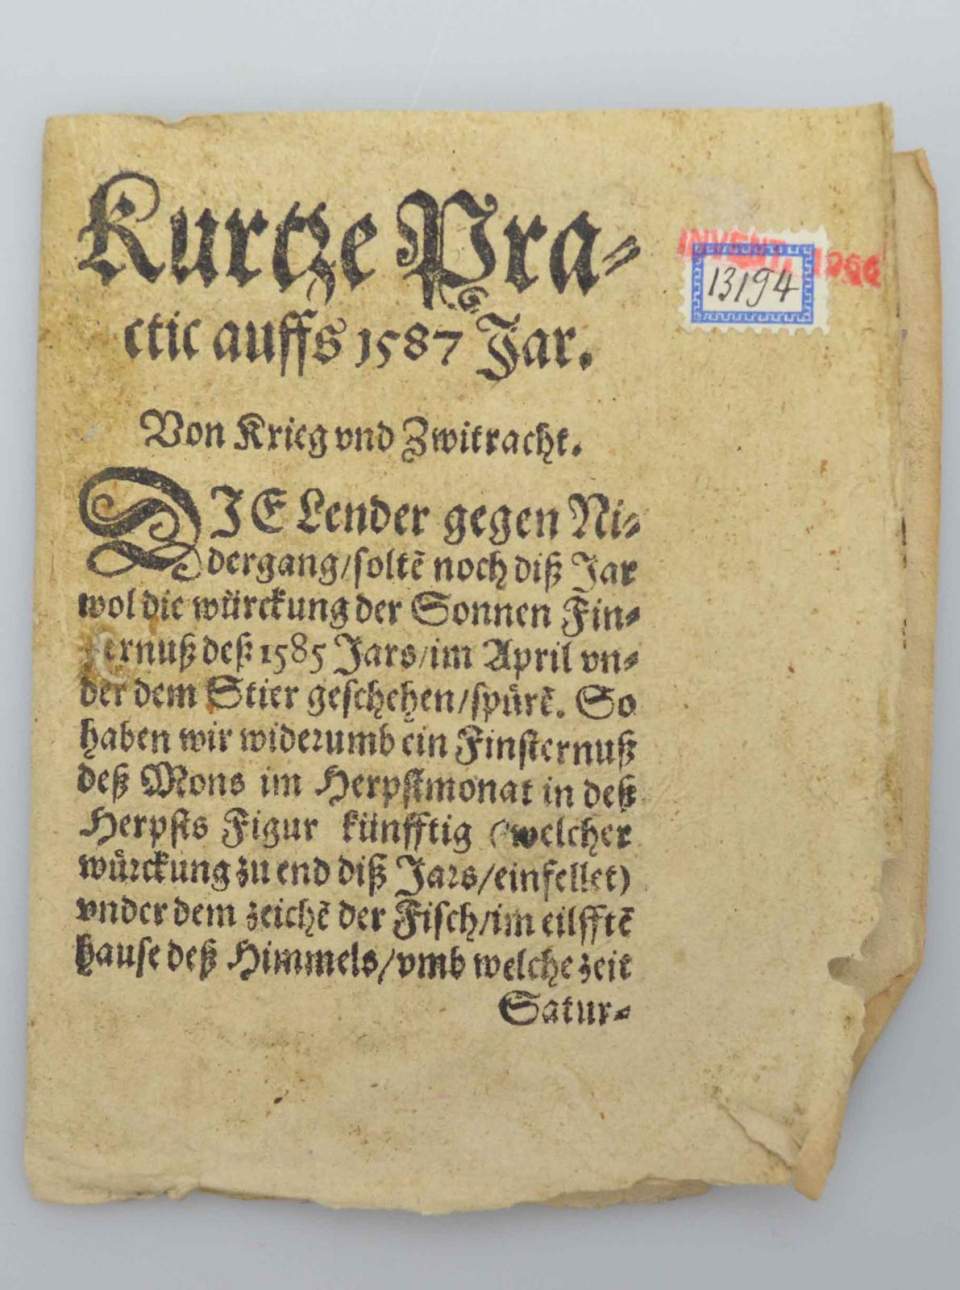 Kurtze Pra-
ctic auffs 1587 Jar.
INVENT 1986
13194
Von Krieg vnd Zwitracht.
DIE Lender gegen Ni-
dergang/soltẽ noch diß Jar
wol die würckung der Sonnen Fin-
sternuß deß 1585 Jars/im April vn-
der dem Stier geschehen/spürẽ. So
haben wir widerumb ein Finsternuß
deß Mons im Herpstmonat in deß
Herpsts Figur künfftig (welcher
würckung zu end diß Jars/einfellet)
vnder dem zeichẽ der Fisch/im eilfftẽ
hause deß Himmels/vmb welche zeit
Satur-